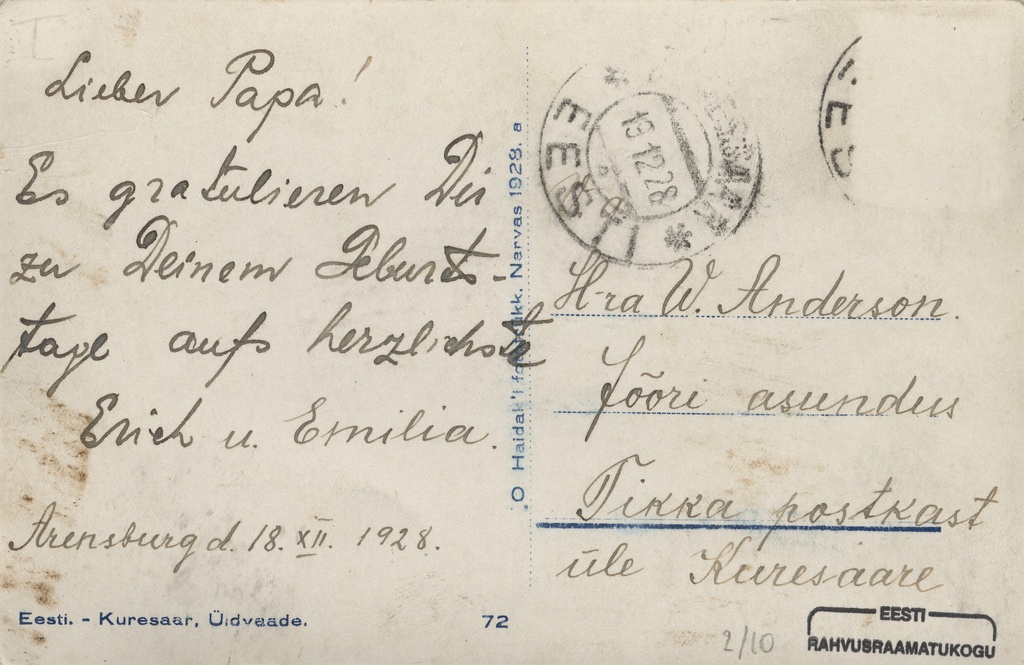 Lieber Papa!
Es gratulieren Dir
zu Deinem Geburts-
tage aufs herzlichste
Erich u. Emilia.
Arensburg d. 18. XII. 1928.
Eesti. - Kuresaar, Üldvaade.
72
O Haidak'i Narvas 1928. a
EESTI
19 12 28
H-ra W. Anderson.
Jööri asundus
Tikka postkast
üle Kuresaare
2/10
EESTI
RAHVUSRAAMATUKOGU